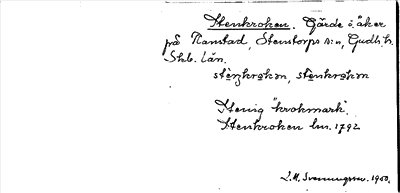 Stenkroken. Gärde o. åker
på Ranstad, Stenstorps sn, Gudh. h.
Skb. län.
sténkrokən, sténkrokən
Stenig "krokmark".
Stenkroken lm. 1792
J. M. Svennungsson. 1950.